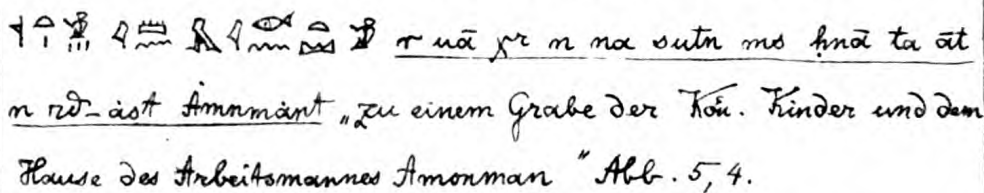 r uā χr n na sutn ms ḥnā ta āt
n rd-ȧst Ȧmnmȧnt „zu einem Grabe der Kön. Kinder und dem
Hause des Arbeitsmannes Amonman" Abb. 5, 4.